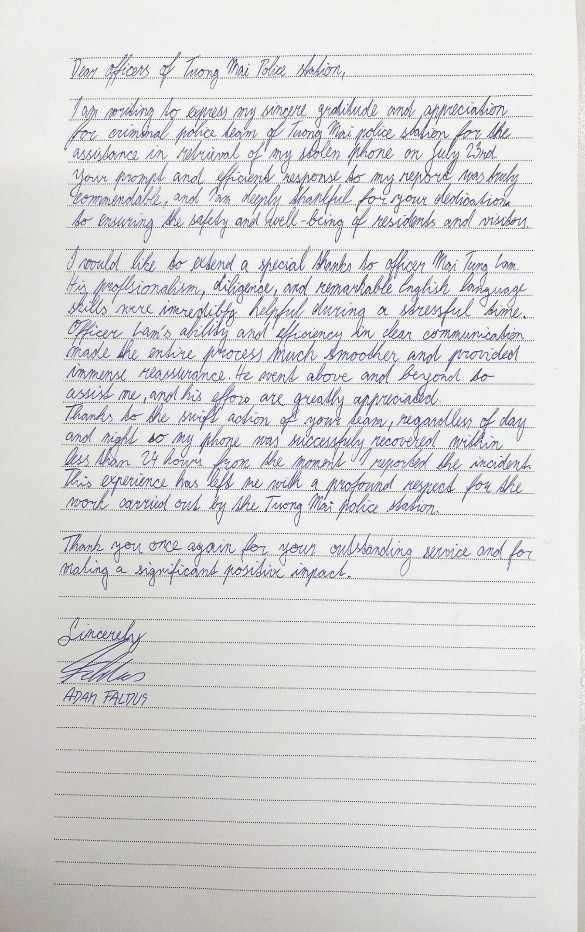 Dear officers of Tuong Mai Police station,
I am writing to express my sincere gratitude and appreciation
for criminal police team of Tuong Mai police station for the
assistance in retrieval of my stolen phone on July 23rd
Your prompt and efficient response to my report was truly
commendable, and I am deeply thankful for your dedication
to ensuring the safety and well-being of residents and visitors.
I would like to extend a special thanks to officer Mai Tung Lam.
His proffsionalism, diligence, and remarkable English language
skills were imredibly helpful during a stressful time.
Officer Lam's ability and efficiency in clear communication
made the entire process much smoother and provided
immense reassurance. He went above and beyond to
assist me, and his effors are greatly appreciated.
Thanks to the swift action of your team, regardless of day
and night so my phone was successfully recovered within
less than 24 hours from the moment I reported the incident.
This experience has left me with a profound respect for the
work carried out by the Tuong Mai police station.
Thank you once again for your outstanding service and for
making a significant positive impact.
Sincerely
ADAM FALDUS